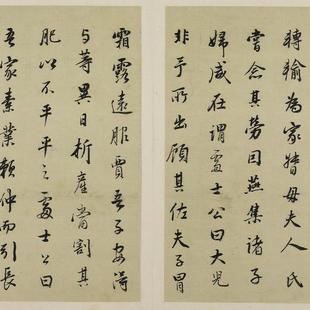 轉輸為家督母夫人氏
嘗念其勞因燕集諸子
婦咸在謂處士公曰大兒
非予所出顧其佐夫子冒
霜露遠服賈吾子安得
与等異日析產當割其
肥以不平平之處士公曰
吾家素業賴仲而引長